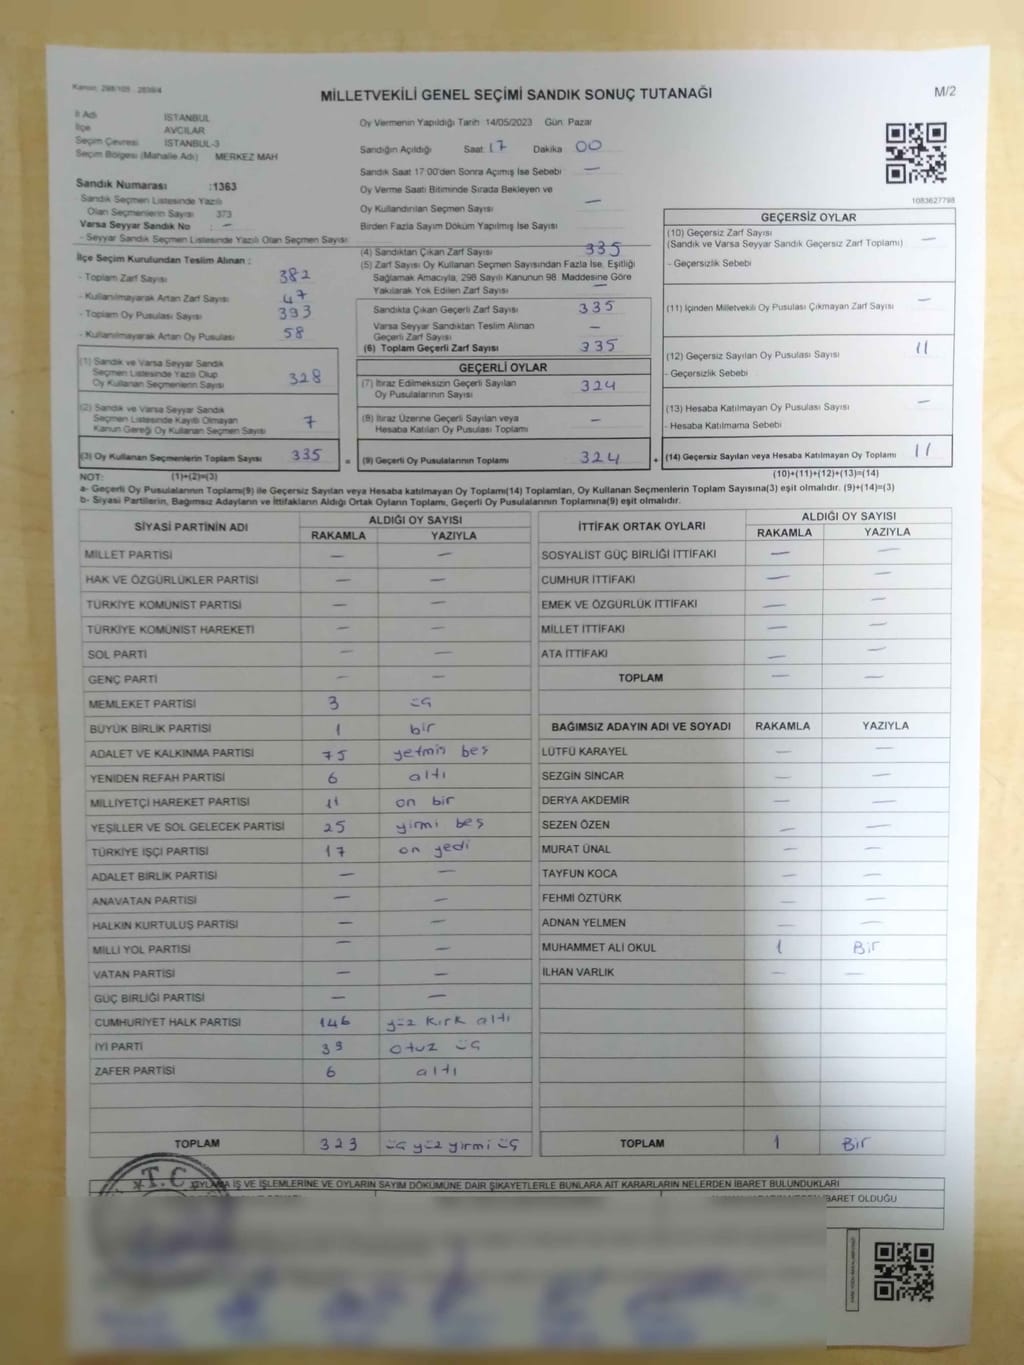 Kanun: 298/105 - 2839/4
MİLLETVEKİLİ GENEL SEÇİMİ SANDIK SONUÇ TUTANAĞI
M/2
İl Adı İSTANBUL
İlçe AVCILAR
Seçim Çevresi İSTANBUL-3
Seçim Bölgesi (Mahalle Adı) MERKEZ MAH
Sandık Numarası :1363
- Sandık Seçmen Listesinde Yazılı
Olan Seçmenlerin Sayısı 373
Varsa Seyyar Sandık No : —
- Seyyar Sandık Seçmen Listesinde Yazılı Olan Seçmen Sayısı:
Oy Vermenin Yapıldığı Tarih 14/05/2023 Gün Pazar
Sandığın Açıldığı Saat 17 Dakika 00
Sandık Saat 17:00'den Sonra Açımış İse Sebebi —
Oy Verme Saati Bitiminde Sırada Bekleyen ve
Oy Kullandırılan Seçmen Sayısı —
Birden Fazla Sayım Döküm Yapılmış İse Sayısı
1083627798
İlçe Seçim Kurulundan Teslim Alınan :
- Toplam Zarf Sayısı 382
- Kullanılmayarak Artan Zarf Sayısı 47
- Toplam Oy Pusulası Sayısı 393
- Kullanılmayarak Artan Oy Pusulası 58
(1) Sandık ve Varsa Seyyar Sandık
Seçmen Listesinde Yazılı Olup
Oy Kullanan Seçmenlerin Sayısı 328
(2) Sandık ve Varsa Seyyar Sandık
Seçmen Listesinde Kayıtlı Olmayan
Kanun Gereği Oy Kullanan Seçmen Sayısı 7
(3) Oy Kullanan Seçmenlerin Toplam Sayısı 335 =
(4) Sandıktan Çıkan Zarf Sayısı 335
(5) Zarf Sayısı Oy Kullanan Seçmen Sayısından Fazla İse, Eşitliği
Sağlamak Amacıyla, 298 Sayılı Kanunun 98. Maddesine Göre
Yakılarak Yok Edilen Zarf Sayısı —
Sandıkta Çıkan Geçerli Zarf Sayısı 335
Varsa Seyyar Sandıktan Teslim Alınan
Geçerli Zarf Sayısı —
(6) Toplam Geçerli Zarf Sayısı 335
GEÇERLİ OYLAR
(7) İtiraz Edilmeksizin Geçerli Sayılan
Oy Pusulalarının Sayısı 324
(8) İtiraz Üzerine Geçerli Sayılan veya
Hesaba Katılan Oy Pusulası Toplamı —
(9) Geçerli Oy Pusulalarının Toplamı 324 +
GEÇERSİZ OYLAR
(10) Geçersiz Zarf Sayısı
(Sandık ve Varsa Seyyar Sandık Geçersiz Zarf Toplamı) —
- Geçersizlik Sebebi
(11) İçinden Milletvekili Oy Pusulası Çıkmayan Zarf Sayısı —
(12) Geçersiz Sayılan Oy Pusulası Sayısı 11
- Geçersizlik Sebebi
(13) Hesaba Katılmayan Oy Pusulası Sayısı —
- Hesaba Katılmama Sebebi
(14) Geçersiz Sayılan veya Hesaba Katılmayan Oy Toplamı 11
NOT: (1)+(2)=(3) (10)+(11)+(12)+(13)=(14)
a- Geçerli Oy Pusulalarının Toplamı(9) ile Geçersiz Sayılan veya Hesaba katılmayan Oy Toplamı(14) Toplamları, Oy Kullanan Seçmenlerin Toplam Sayısına(3) eşit olmalıdır. (9)+(14)=(3)
b- Siyasi Partilerin, Bağımsız Adayların ve İttifakların Aldığı Ortak Oyların Toplamı, Geçerli Oy Pusulalarının Toplamına(9) eşit olmalıdır.
SİYASİ PARTİNİN ADI ALDIĞI OY SAYISI
RAKAMLA YAZIYLA
MİLLET PARTİSİ — —
HAK VE ÖZGÜRLÜKLER PARTİSİ — —
TÜRKİYE KOMÜNİST PARTİSİ — —
TÜRKİYE KOMÜNİST HAREKETİ — —
SOL PARTİ — —
GENÇ PARTİ — —
MEMLEKET PARTİSİ 3 üç
BÜYÜK BİRLİK PARTİSİ 1 bir
ADALET VE KALKINMA PARTİSİ 75 yetmiş beş
YENİDEN REFAH PARTİSİ 6 altı
MİLLİYETÇİ HAREKET PARTİSİ 11 on bir
YEŞİLLER VE SOL GELECEK PARTİSİ 25 yirmi beş
TÜRKİYE İŞÇİ PARTİSİ 17 on yedi
ADALET BİRLİK PARTİSİ — —
ANAVATAN PARTİSİ — —
HALKIN KURTULUŞ PARTİSİ — —
MİLLİ YOL PARTİSİ — —
VATAN PARTİSİ — —
GÜÇ BİRLİĞİ PARTİSİ — —
CUMHURİYET HALK PARTİSİ 146 yüz kırk altı
İYİ PARTİ 33 otuz üç
ZAFER PARTİSİ 6 altı
TOPLAM 323 üç yüz yirmi üç
İTTİFAK ORTAK OYLARI ALDIĞI OY SAYISI
RAKAMLA YAZIYLA
SOSYALİST GÜÇ BİRLİĞİ İTTİFAKI — —
CUMHUR İTTİFAKI — —
EMEK VE ÖZGÜRLÜK İTTİFAKI — —
MİLLET İTTİFAKI — —
ATA İTTİFAKI — —
TOPLAM — —
BAĞIMSIZ ADAYIN ADI VE SOYADI RAKAMLA YAZIYLA
LÜTFÜ KARAYEL — —
SEZGİN SİNCAR — —
DERYA AKDEMİR — —
SEZEN ÖZEN — —
MURAT ÜNAL — —
TAYFUN KOCA — —
FEHMİ ÖZTÜRK — —
ADNAN YELMEN — —
MUHAMMET ALİ OKUL 1 Bir
İLHAN VARLIK — —
TOPLAM 1 Bir
T.C.
OYLAMA İŞ VE İŞLEMLERİNE VE OYLARIN SAYIM DÖKÜMÜNE DAİR ŞİKAYETLERLE BUNLARA AİT KARARLARIN NELERDEN İBARET BULUNDUKLARI
İBARET OLDUĞU